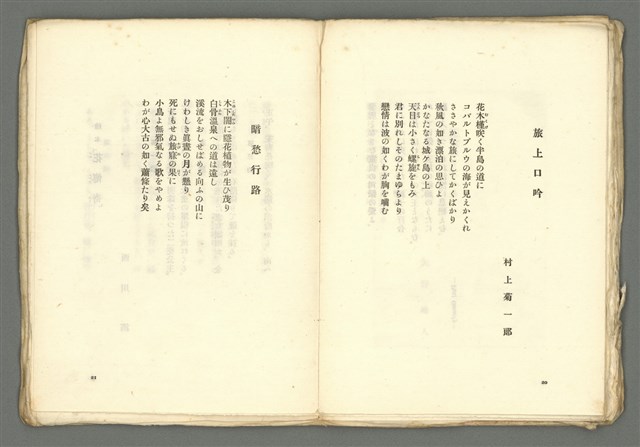 旅上口吟
村上菊一郎
花木槿咲く半島の道に
コバルトブルウの海が見えかくれ
ささやかな旅にしてかくばかり
秋風の如き漂泊の思ひよ
かなたなる城ケ島の上
天日は小さく螺旋をもみ
君に別れしそのたまゆらより
戀情は波の如くわが胸を嚙む
30
暗愁行路
木下闇に隱花植物が生ひ茂り
白骨溫泉への道は遠し
溪流をおしせばめる向ふの山に
けわしき眞晝の月が懸り
死にもせぬ旅寢の果に
小鳥よ無邪氣なる歌をやめよ
わが心太古の如く蕭條たり矣
31